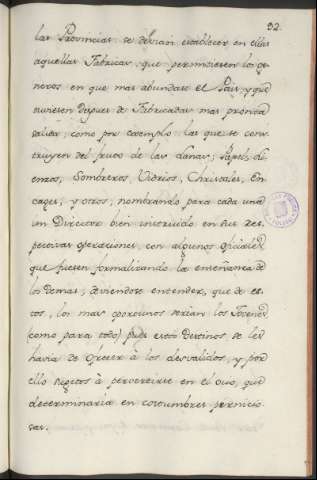 32.
las Provincias se debian establecer en ellas
aquellas Fabricas que permitiesen los ge-
neros en que mas abundase el Pais, y que
tuviesen despues de Fabricadas mas pronta
salida; como por exemplo las que se cons-
truyen del fruto de las Lanas; Papel, li-
enzos, Sombreros, Vidrios, Christales, En-
caxes, y otros; nombrando para cada una
un Director bien instruido en sus res-
pectivas operaciones, con algunos oficiales
que fuesen formalizando la enseñanza de
los demas; deviendose entender, que de es-
tos, los mas oportunos serian los Jovenes
(como para todo) pues estos Destinos, se les
havia de ofrecer à los desvalidos, y por
ello sugetos à pervertirse en el ocio, que
determinaria en costumbres pernicio-
sas.